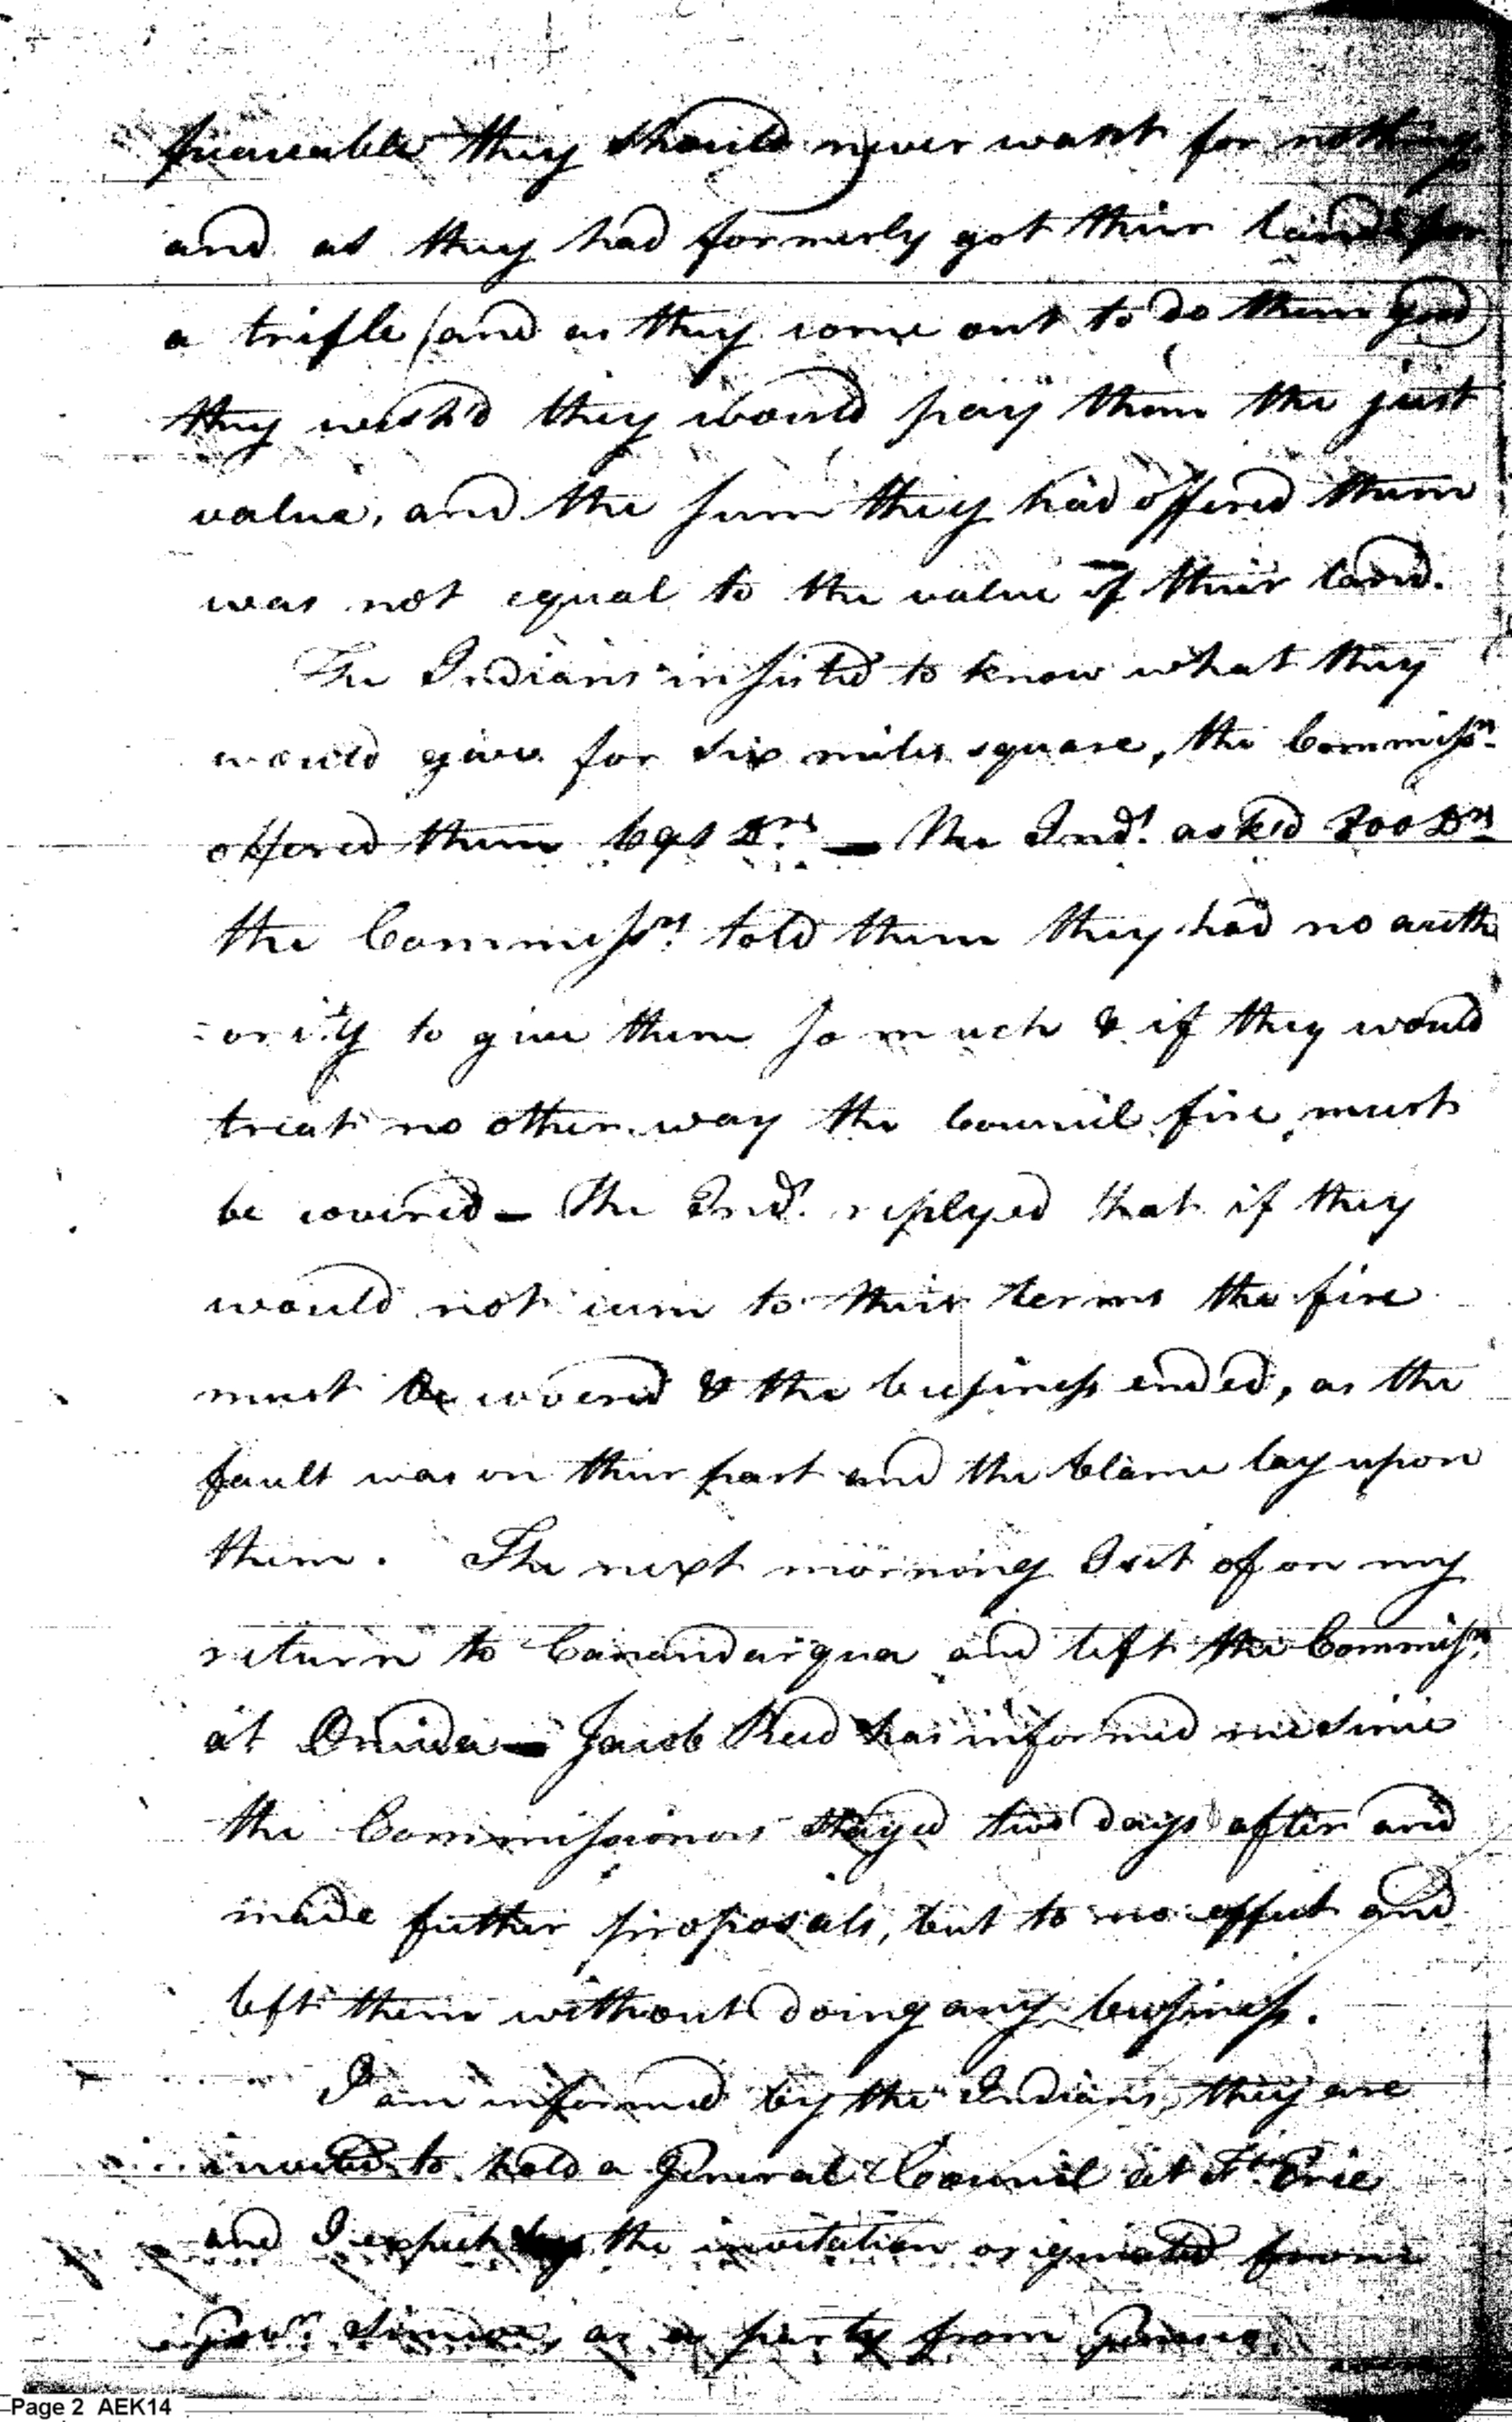 they should never want for nothing
and as they had formerly got their lands for
a trifle (and as they come out to do them good)
they wish'd they would pay them the just
value, and the sum they had offered them
was not equal to the value of their land.
The Indians insisted to know what they
would give for six miles square, the Commissrs
offered them Drs — The Inds asked Drs
the Commissrs told them they had no auth
-ority to give them so much & if they would
treat no other way the Council fire must
be covered — The Inds replyed that if they
would not cum to their terms the fire
must be covered & the business ended, as the
fault was on their part and the blame lay upon
them. The next morning I set of on my
return to Canandarqua and left the Commissrs
at Oneida — Jacob Reed has informed me since
the Commissioners stayed two days after and
made futher proposals, but to no effect and
left them without doing any business.
I am informed by the Indians, they are
invited to hold a General Council at Ft. Erie
and I expect the invitation originated from
Govr. as a party from
Page 2 AEK14